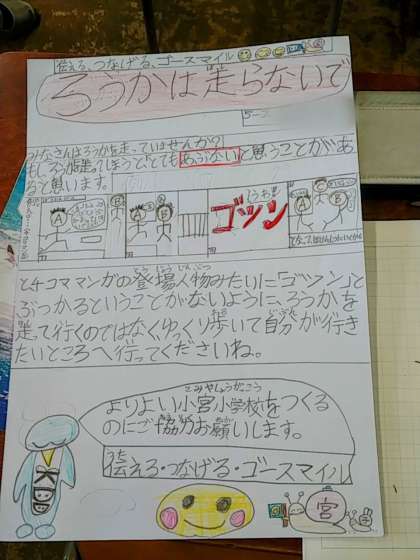 伝える、つなげる、ゴースマイル
ろうかは走らないで
みなさんはろうかを走っていませんか?
もしろうか走ってしまうととても あぶない と思うことがあ
ると思います。
A
B
A
B
ゴツン
と4コママンガの登場人物みたいに「ゴツン」と
ぶつかるということがないように、ろうかを
走って行くのではなくゆっくり歩いて自分が行き
たいところへ行ってくださいね。
よりよい小宮小学校をつくる
のにご協力お願いします。
伝える・つなげる・ゴースマイル
宮